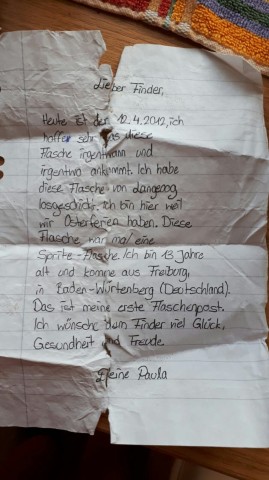 Lieber Finder,
Heute ist der 12.4.2012, ich
hoffe sehr das diese
Flasche irgentwann und
irgentwo ankommt. Ich habe
diese Flasche von Langeoog
losgeschickt. Ich bin hier weil
wir Osterferien haben. Diese
Flasche war mal eine
Sprite-Flasche. Ich bin 13 Jahre
alt und komme aus Freiburg,
in Baden-Würtenberg (Deutschland).
Das ist meine erste Flaschenpost.
Ich wünsche dem Finder viel Glück,
Gesundheit und Freude.
Deine Paula